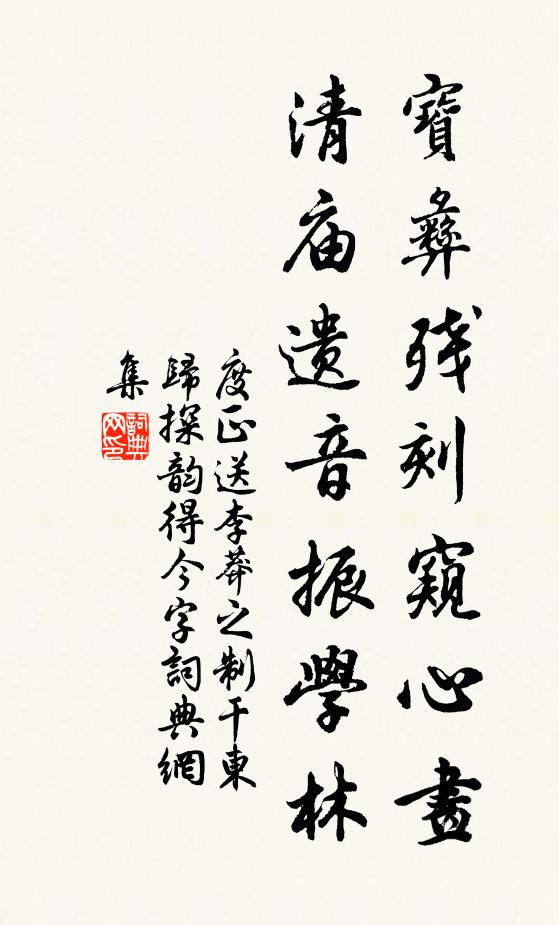 寶彝殘刻窺心畫
清庙遺音振學林
度正送李莽之制干東
歸探韵得今字詞典網
集
詞典
网印